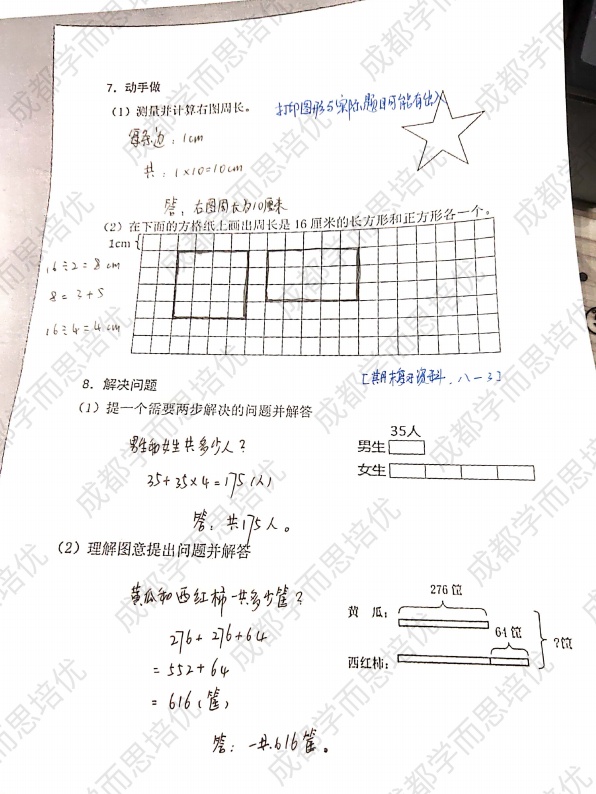 7. 动手做
(1) 测量并计算右图周长。
打印图形与实际题目可能有出入
每条边：1cm
共：1×10=10cm
答：右图周长为10厘米
(2) 在下面的方格纸上画出周长是 16 厘米的长方形和正方形各一个。
1cm
16÷2=8cm
8=3+5
16÷4=4cm
8. 解决问题
[期末复习资料.八一3]
(1) 提一个需要两步解决的问题并解答
男生和女生共多少人？
35人
男生
女生
35+35×4=175(人)
答：共175人。
(2) 理解图意提出问题并解答
黄瓜和西红柿一共多少筐？
276 筐
黄 瓜：
64 筐
?筐
西红柿：
276+276+64
=552+64
=616(筐)
答：一共616筐。
成都学而思培优